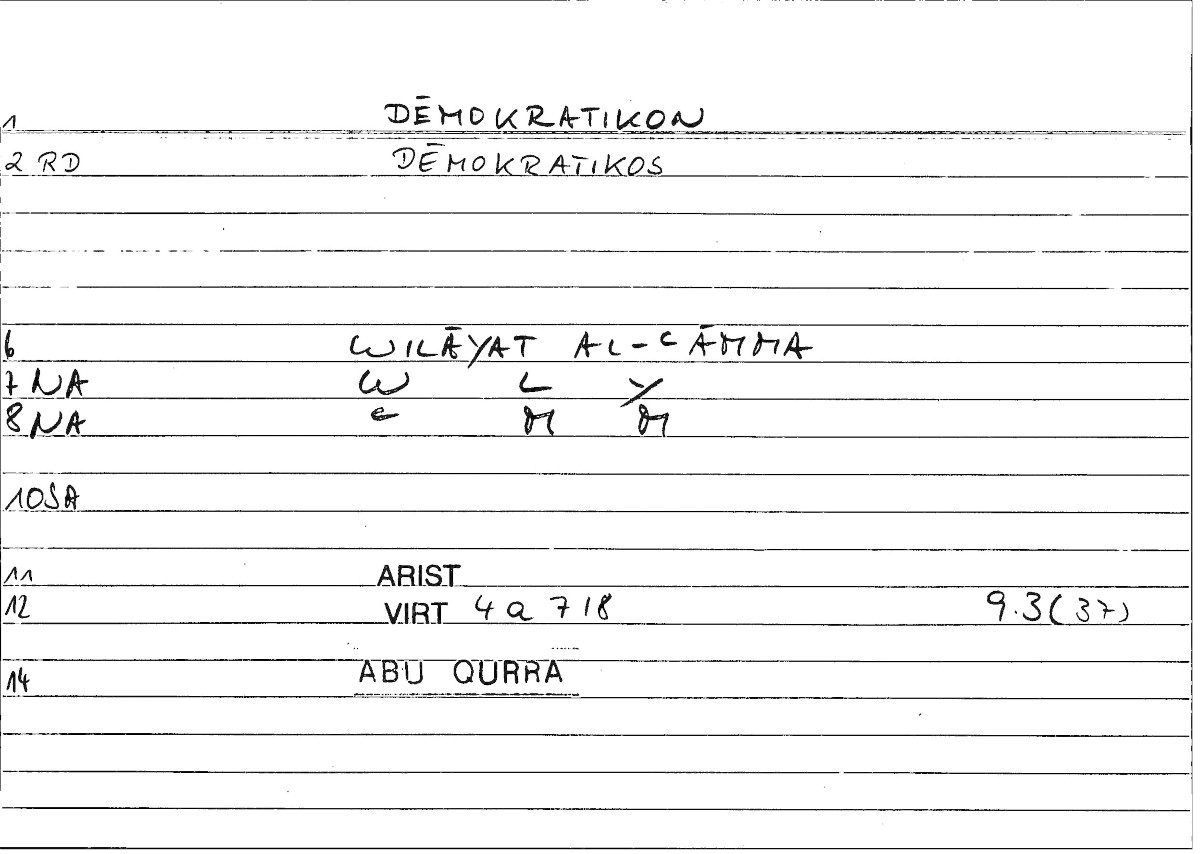 1 DĒMOKRATIKON
2 RD DĒMOKRATIKOS
6 WILĀYAT AL-ᶜĀMMA
7 NA W L Y
8 NA ᶜ M M
10 SA
11 ARIST
12 VIRT 4 a 7 18 9.3(37)
14 ABU QURRA